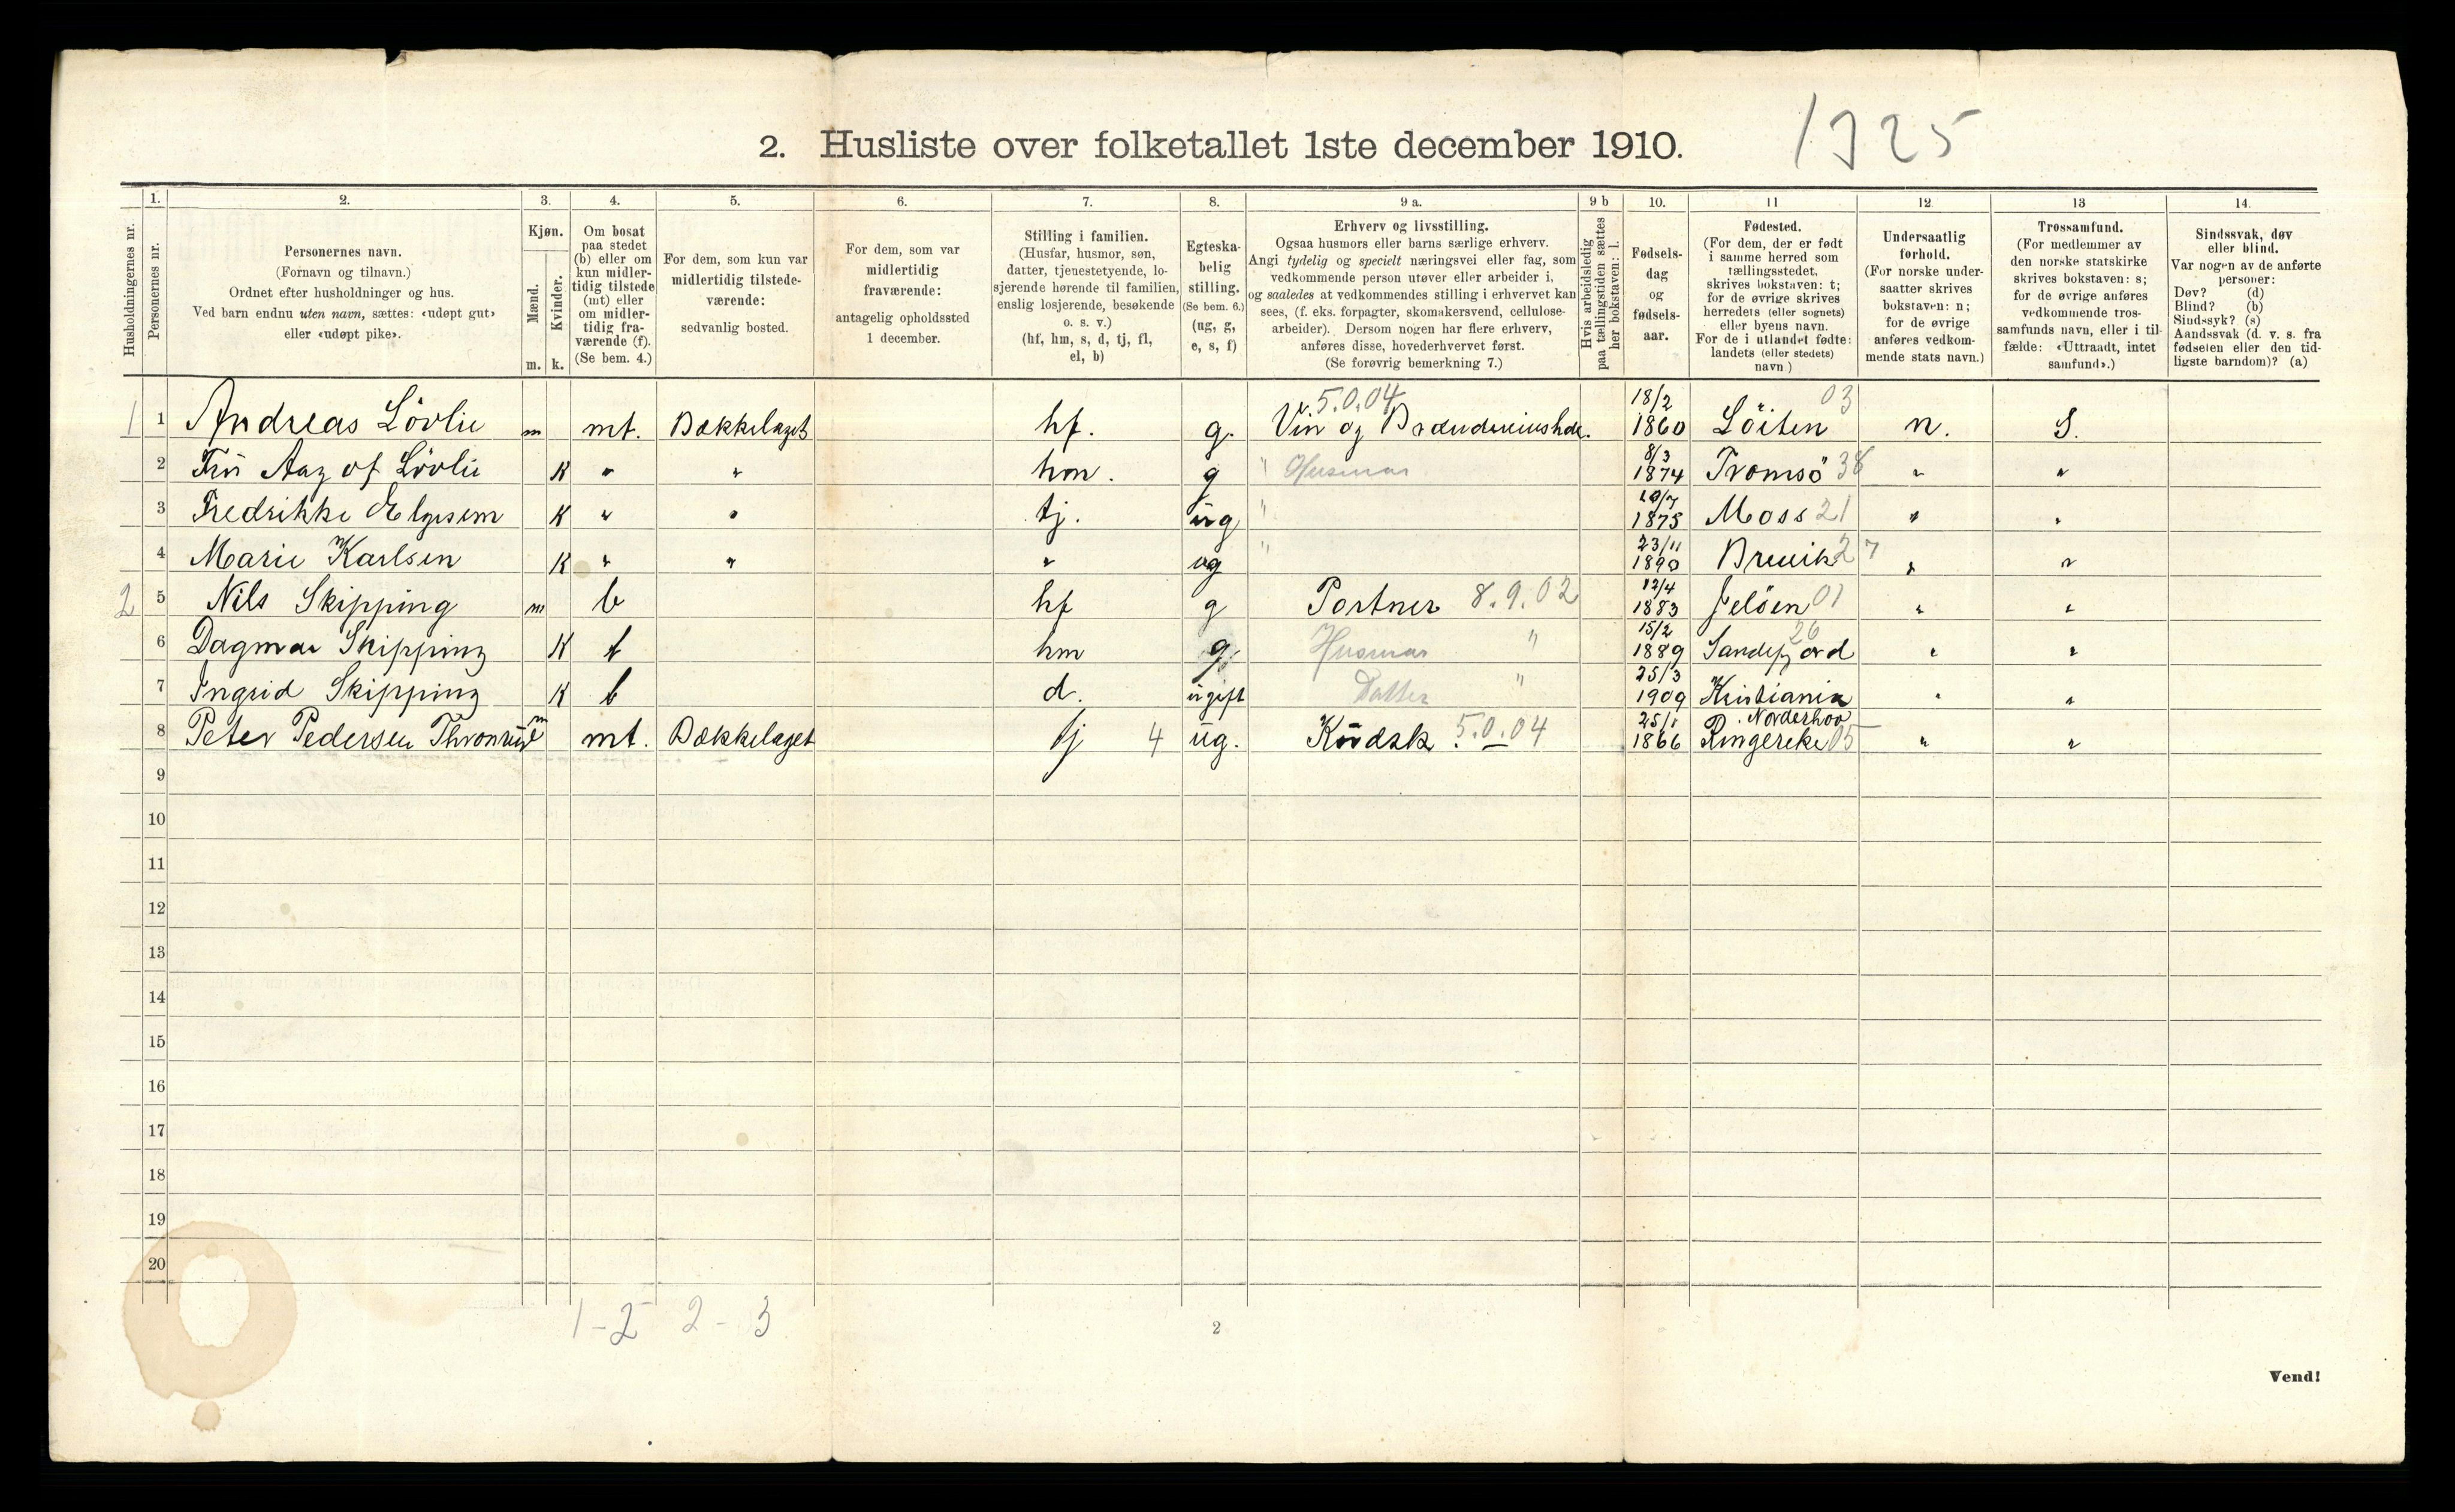 2. Husliste over folketallet 1ste december 1910.
1925
Husholdningernes nr.
1. Personernes nr.
2. Personernes navn. (Fornavn og tilnavn.) Ordnet efter husholdninger og hus. Ved barn endnu uten navn, sættes: «udøpt gut» eller «udøpt pike».
3. Kjøn. Mænd. m. Kvinder. k.
4. Om bosat paa stedet (b) eller om kun midlertidig tilstede (mt) eller om midlertidig fraværende (f). (Se bem. 4.)
5. For dem, som kun var midlertidig tilstedeværende: sedvanlig bosted.
6. For dem, som var midlertidig fraværende: antagelig opholdssted 1 december.
7. Stilling i familien. (Husfar, husmor, søn, datter, tjenestetyende, losjerende hørende til familien, enslig losjerende, besøkende o. s. v.) (hf, hm, s, d, tj, fl, el, b)
8. Egteskabelig stilling. (Se bem. 6.) (ug, g, e, s, f)
9 a. Erhverv og livsstilling. Ogsaa husmors eller barns særlige erhverv. Angi tydelig og specielt næringsvei eller fag, som vedkommende person utøver eller arbeider i, og saaledes at vedkommendes stilling i erhvervet kan sees, (f. eks. forpagter, skomakersvend, cellulosearbeider). Dersom nogen har flere erhverv, anføres disse, hovederhvervet først. (Se forøvrig bemerkning 7.)
9 b Hvis arbeidsledig paa tællingstiden sættes her bokstaven: l.
10. Fødselsdag og fødselsaar.
11 Fødested. (For dem, der er født i samme herred som tællingsstedet, skrives bokstaven: t; for de øvrige skrives herredets (eller sognets) eller byens navn. For de i utlandet fødte: landets (eller stedets) navn.)
12. Undersaatlig forhold. (For norske undersaatter skrives bokstaven: n; for de øvrige anføres vedkommende stats navn.)
13 Trossamfund. (For medlemmer av den norske statskirke skrives bokstaven: s; for de øvrige anføres vedkommende trossamfunds navn, eller i tilfælde: «Uttraadt, intet samfund».)
14. Sindssvak, døv eller blind. Var nogen av de anførte personer: Døv? (d) Blind? (b) Sindssyk? (s) Aandssvak (d. v. s. fra fødselen eller den tidligste barndom)? (a)
1 1 Andreas Lövlie m mt. Bækkelaget hf. g. 5.0.04 Vin og 18/2 1860 Löiten 03 n. S.
2 Frü Aag of Lövlie K " " hm. g " Husmor 8/3 1874 Tromsö 38 " "
3 Fredrikke Elgesem K " " tj. üg " 10/7 1875 Moss 21 " "
4 Marie Karlsen K " " " ug " 23/11 1890 Brevik 27 " "
2 5 Nils Skipping m b hf g Portner 8.9.02 12/4 1883 Jelöen 01 " "
6 Dagmar Skipping K b hm g Husmor " 15/2 1889 Sandefjord 26 " "
7 Ingrid Skipping K b d. ügift Datter " 25/3 1909 Kristiania " "
8 Peter Pedersen m mt. Bækkelaget tj 4 üg. Küdsk 5.0.04 25/1 1866 Norderhov Ringerike 05 " "
9
10
11
12
13
14
15
16
17
18
19
20
1-2 2-3
2
Vend!